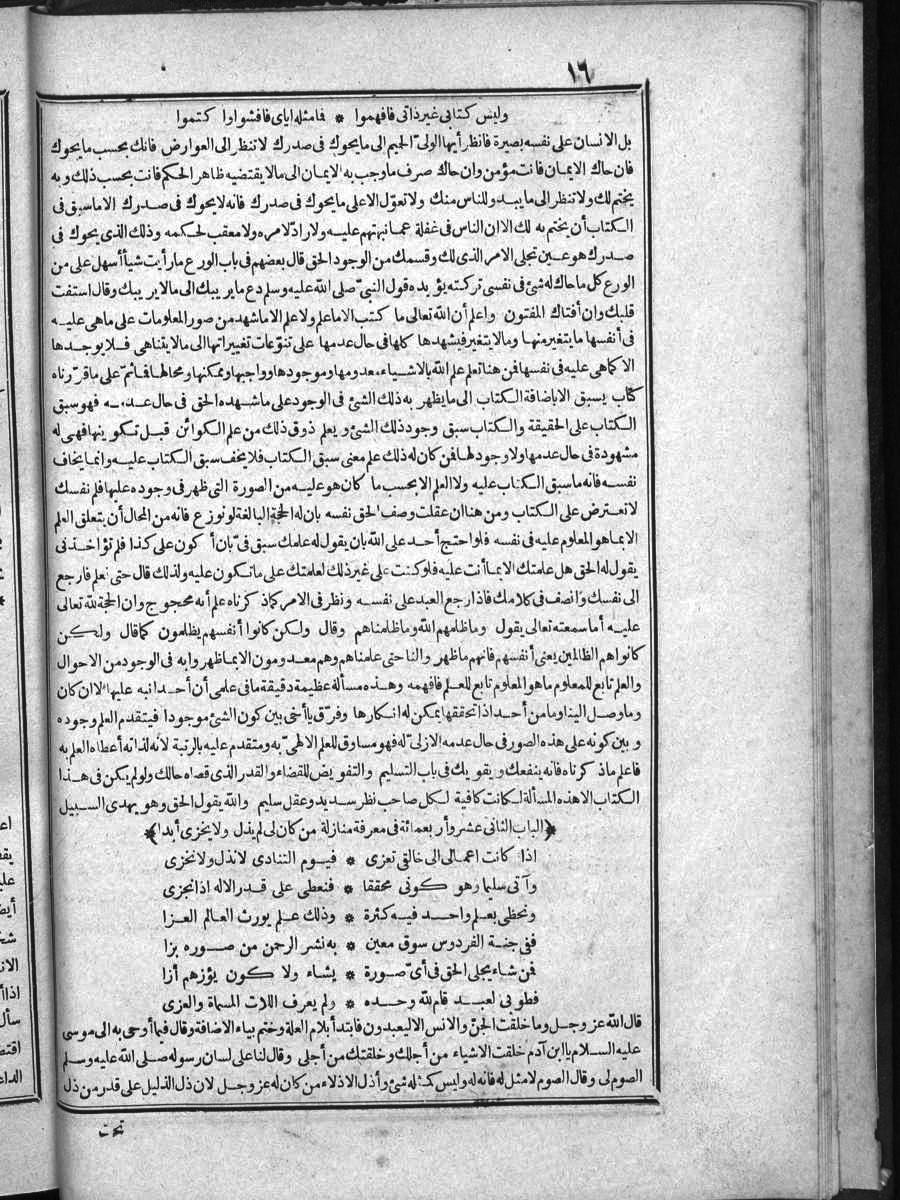 ١٦
وليس كتابي غير ذاتي فافهموا * فامثله اياي فافشوا أو اكتموا
بل الانسان على نفسه بصيرة فانظر أيها الولي الحميم الى ما يحوك في صدرك لا تنظر الى العوارض فانك بحسب ما يحوك
فان حاك الايمان فانت مؤمن وان حاك صرف ما وجب به الايمان الى ما لا يقتضيه ظاهر الحكم فانت بحسب ذلك وبه
يختم لك ولا تنظر الى ما يبدو للناس منك ولا تعوّل الا على ما يحوك في صدرك فانه لا يحوك في صدرك الا ما سبق في
الكتاب أن يختم به لك الا ان الناس في غفلة عما نبهتهم عليه ولا رادّ لامره ولا معقب لحكمه وذلك الذي يحوك في
صدرك هو عين تجلى الامر الذي لك وقسمك من الوجود الحق قال بعضهم في باب الورع ما رأيت شيأ أسهل على من
الورع كل ما حاك له شئ في نفسي تركته يؤيده قول النبيّ صلى الله عليه وسلم دع ما يريبك الى ما لا يريبك وقال استفت
قلبك وان أفتاك المفتون واعلم أن الله تعالى ما كتب الا ما علم ولا علم الا ما شهد من صور المعلومات على ما هى عليه
في أنفسها ما يتغير منها وما لا يتغير فيشهدها كلها في حال عدمها على تنوّعات تغييراتها الى ما لا يتناهى فلا يوجدها
الا كما هى عليه في نفسها فمن هنا تعلم علم الله بالاشياء معدومها وموجودها وواجبها وممكنها ومحالها فما ثم على ما قرّرناه
كتاب يسبق الا باضافة الكتاب الى ما يظهر به ذلك الشئ في الوجود على ما شهده الحق في حال عدمه فهو سبق
الكتاب على الحقيقة والكتاب سبق وجود ذلك الشئ ويعلم ذوق ذلك من علم الكوائن قبل تكوينها فهى له
مشهودة في حال عدمها ولا وجود لها فمن كان له ذلك علم معنى سبق الكتاب فلا يخف سبق الكتاب عليه وانما يخاف
نفسه فانه ما سبق الكتاب عليه ولا العلم الا بحسب ما كان هو عليه من الصورة التى ظهر في وجوده عليها فلم نفسك
لا تعترض على الكتاب ومن هنا ان عقلت وصف الحق نفسه بان له الحجة البالغة لو نوزع فانه من المحال أن يتعلق العلم
الا بما هو المعلوم عليه في نفسه فلو احتج أحد على الله بان يقول له علمك سبق فيّ بان أكون على كذا فلم تؤاخذني
يقول له الحق هل علمتك الا بما أنت عليه فلو كنت على غير ذلك لعلمتك على ما تكون عليه ولذلك قال حتى نعلم فارجع
الى نفسك وأنصف في كلامك فاذا رجع العبد على نفسه ونظر في الامر كما ذكرناه علم أنه محجوج وان الحجة لله تعالى
عليه أما سمعته تعالى يقول وما ظلمهم الله وما ظلمناهم وقال ولكن كانوا أنفسهم يظلمون كما قال ولكن
كانوا هم الظالمين يعنى أنفسهم فانهم ما ظهروا لنا حتى علمناهم وهم معدومون الا بما ظهروا به في الوجود من الاحوال
والعلم تابع للمعلوم ما هو المعلوم تابع للعلم فافهمه وهذه مسألة عظيمة دقيقة ما في علمى أن أحدا نبه عليها الا ان كان
وما وصل الينا وما من أحد اذا تحققها يمكن له انكارها وفرّق يا أخى بين كون الشئ موجودا فيتقدم العلم وجوده
وبين كونه على هذه الصور في حال عدمه الازليّ له فهو مساوق للعلم الالهيّ به ومتقدم عليه بالرتبة لانه لذاته أعطاه العلم به
فاعلم ما ذكرناه فانه ينفعك ويقويك في باب التسليم والتفويض للقضاء والقدر الذي قضاه حالك ولو لم يكن في هذا
الكتاب الا هذه المسألة لكانت كافية لكل صاحب نظر سديد وعقل سليم والله يقول الحق وهو يهدى السبيل
﴿الباب الثاني عشر وأربعمائة في معرفة منازلة من كان لي لم يذل ولا يخزى أبدا﴾
اذا كانت اعمالى الى خالقى تعزى * فيوم التنادى لا نذل ولا نخزى
وآتى سليما وهو كونى محققا * فنعطى على قدر الاله اذا نجزى
ونحظى بعلم واحد فيه كثرة * وذلك علم يورث العالم العزا
ففى جنة الفردوس سوق معين * به نشر الرحمن من صوره بزا
فمن شاء يجلى الحق في أيّ صورة * يشاء ولا كون يؤزهم أزا
فطوبى لعبد قام لله وحده * ولم يعرف اللات المسماة والعزى
قال الله عز وجل وما خلقت الجنّ والانس الا ليعبدون فابتدأ بلام العلة وختم بياء الاضافة وقال فيما أوحى به الى موسى
عليه السلام يا ابن آدم خلقت الاشياء من أجلك وخلقتك من أجلى وقال لنا على لسان رسوله صلى الله عليه وسلم
الصوم لى وقال الصوم لا مثل له فانه له وليس كمثله شئ وأذل الاذلاء من كان له عز وجل لان ذل الذليل على قدر من ذل
تحت